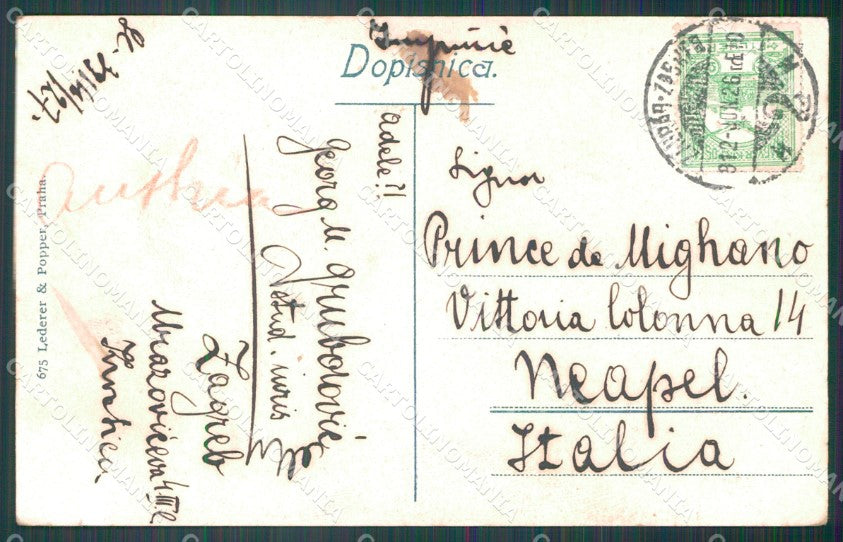 Imprimé
Dopisnica.
Signor
Prince de Mighano
Vittoria Colonna 14
Neapel.
Italia
Adele?!
Georg M. Grubotović
stud. iuris
Zagreb
Mrazovićeva 4 III
Austria
675 Lederer & Popper, Praha.
CARTOLINOMANIA